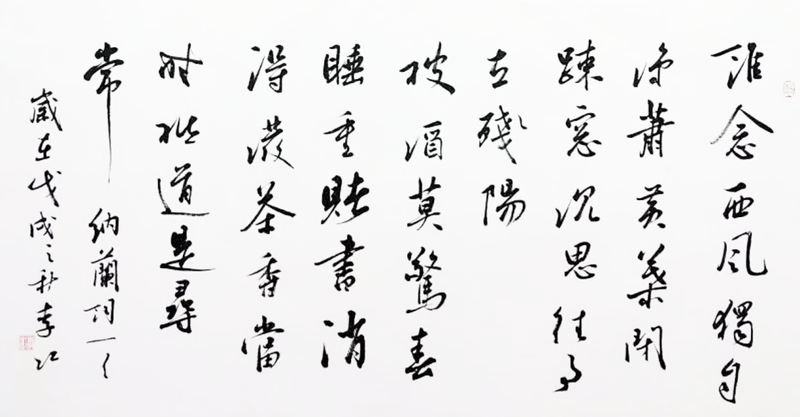 誰念西风獨自
涼蕭黃葉閉
疎窓沉思往事
立殘陽
被酒莫驚春
睡重賭書消
得潑茶香當
时祗道是尋
常 納蘭詞一首
歲在戊戌之秋李